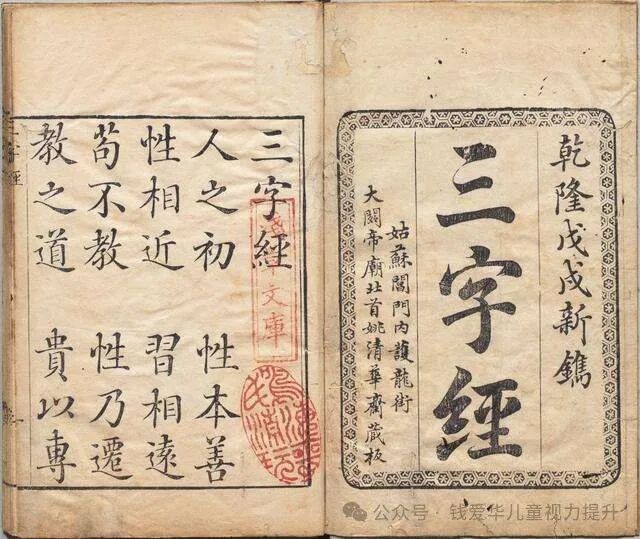 乾隆戊戌新鐫
三字經
姑蘇閶門內護龍街
大關帝廟北首姚清華齋藏板
三字經
人之初 性本善
性相近 習相遠
苟不教 性乃遷
教之道 貴以專
文庫
公众号 · 钱爱华儿童视力提升